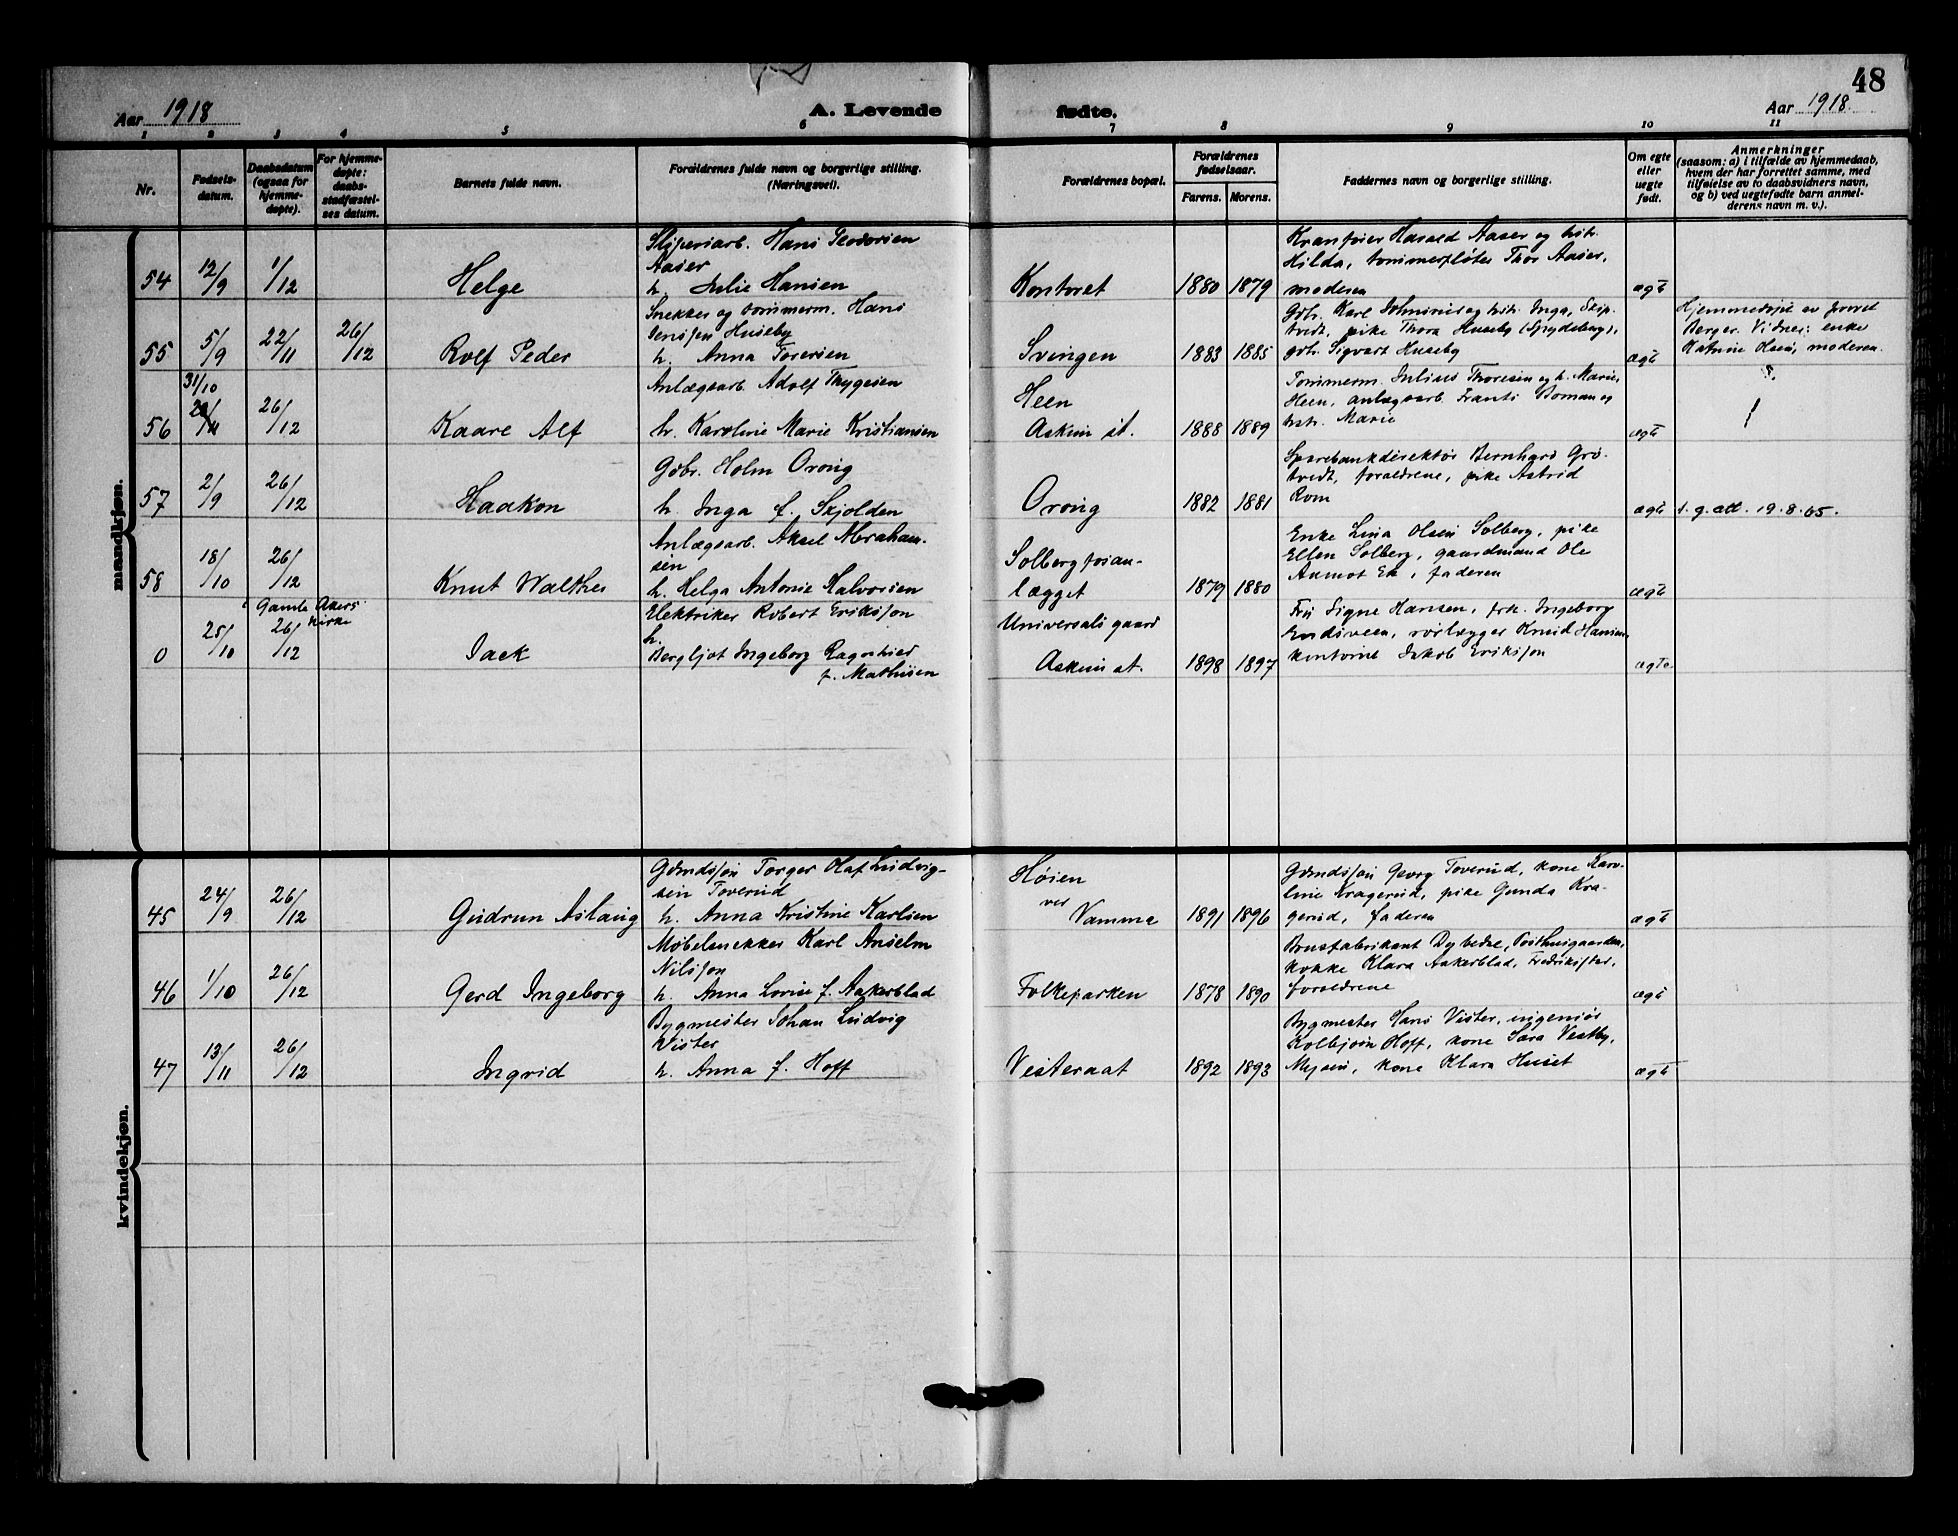 48
Aar 1918
A. Levende
fødte.
Aar 1918.
1 2 3 4 5 6 7 8 9 10 11
Nr.
Fødsels-
datum.
Daabsdatum
(ogsaa for
hjemme-
døpte).
For hjemme-
døpte:
daabs-
stadfæstel-
ses datum.
Barnets fulde navn.
Forældrenes fulde navn og borgerlige stilling.
(Næringsvei).
Forældrenes bopæl.
Forældrenes
fødselsaar.
Farens. Morens.
Faddernes navn og borgerlige stilling.
Om egte
eller
uegte
født.
Anmerkninger
(saasom: a) i tilfælde av hjemmedaab,
hvem der har forrettet samme, med
tilføielse av to daabsvidners navn,
og b) ved uegtefødte barn anmel-
derens navn m. v.).
mandkjøn.
54 12/9 1/12 Helge
Sliperiarb. Hans Teodorsen
Aaser
h. Julie Hansen
Kontoret 1880 1879
Kranfører Harald Aaser og hstr.
Hilda, tømmerfløter Thor Aaser,
moderen
ægte
55 5/9 22/11 26/12 Rolf Peder
Snekker og tømmerm. Hans
Jensen Huseby
h. Anna Toresen
Svingen 1883 1885
Gbr. Karl Johnsrud og hstr. Inga, Skip-
tvedt, pike Thora Huseby (Spydeberg),
gbr. Sigvart Huseby
ægte
Hjemmedøpt av provst
Berger. Vidner: enke
Katrine Olsen, moderen.
56 31/10 26/12 Kaare Alf
Anlægsarb. Adolf Thygesen
h. Karoline Marie Kristiansen
Heen
Askim st. 1888 1889
Tømmerm. Julius Thoresen og h. Marie,
Heen, anlægsarb. Frants Boman og
hstr. Marie
ægte
57 2/9 26/12 Haakon
Gbr. Holm Oraug
h. Inga f. Skjolden
Oraug 1882 1881
Sparebankdirektør Bernhard Grø-
tvedt, forældrene, pike Astrid
Rom
ægte 1. g. att. 19.8.65.
58 18/10 26/12 Knut Walther
Anlægsarb. Aksel Abraham-
sen
h. Helga Antonie Halvorsen
Solbergfosan-
lægget 1879 1880
Enke Lina Olsen Solberg, pike
Ellen Solberg, gaardmand Ole
Aamot Ek, faderen
ægte
i Gamle Akers
kirke
0 25/10 26/12 Jack
Elektriker Robert Eriksson
h.
Bergljot Ingeborg Ragnhild
f. Mathisen
Universals gaard
Askim st. 1898 1897
Fru Signe Hansen, frk. Ingeborg
rørlægger Knud Hansen,
kontorist Jakob Eriksson
ægte
kvindekjøn.
45 24/9 26/12 Gudrun Aslaug
Gdmdssøn Torger Olaf Ludvig-
sen Toverud
h. Anna Kristine Karlsen
Høien
ved
Vamma 1891 1896
Gdmdssøn Georg Toverud, kone Karo-
line Kragerud, pike Gunda Kra-
gerud, faderen
ægte
46 1/10 26/12 Gerd Ingeborg
Møbelsnekker Karl Anselm
Nilsson
h. Anna Lovise f. Aakerblad
Folkeparken 1878 1890
Brusfabrikant Dybedal, Posthusgaarden,
kokke Klara Aakerblad, Fredrikstad,
forældrene
ægte
47 13/11 26/12 Ingrid
Bygmester Johan Ludvig
Vister
h. Anna f. Hoff
Vesteraat 1892 1893
Bygmester Hans Vister, ingeniør
Kolbjørn Hoff, kone Sara Vestby,
Mysen, kone Klara Huset
ægte